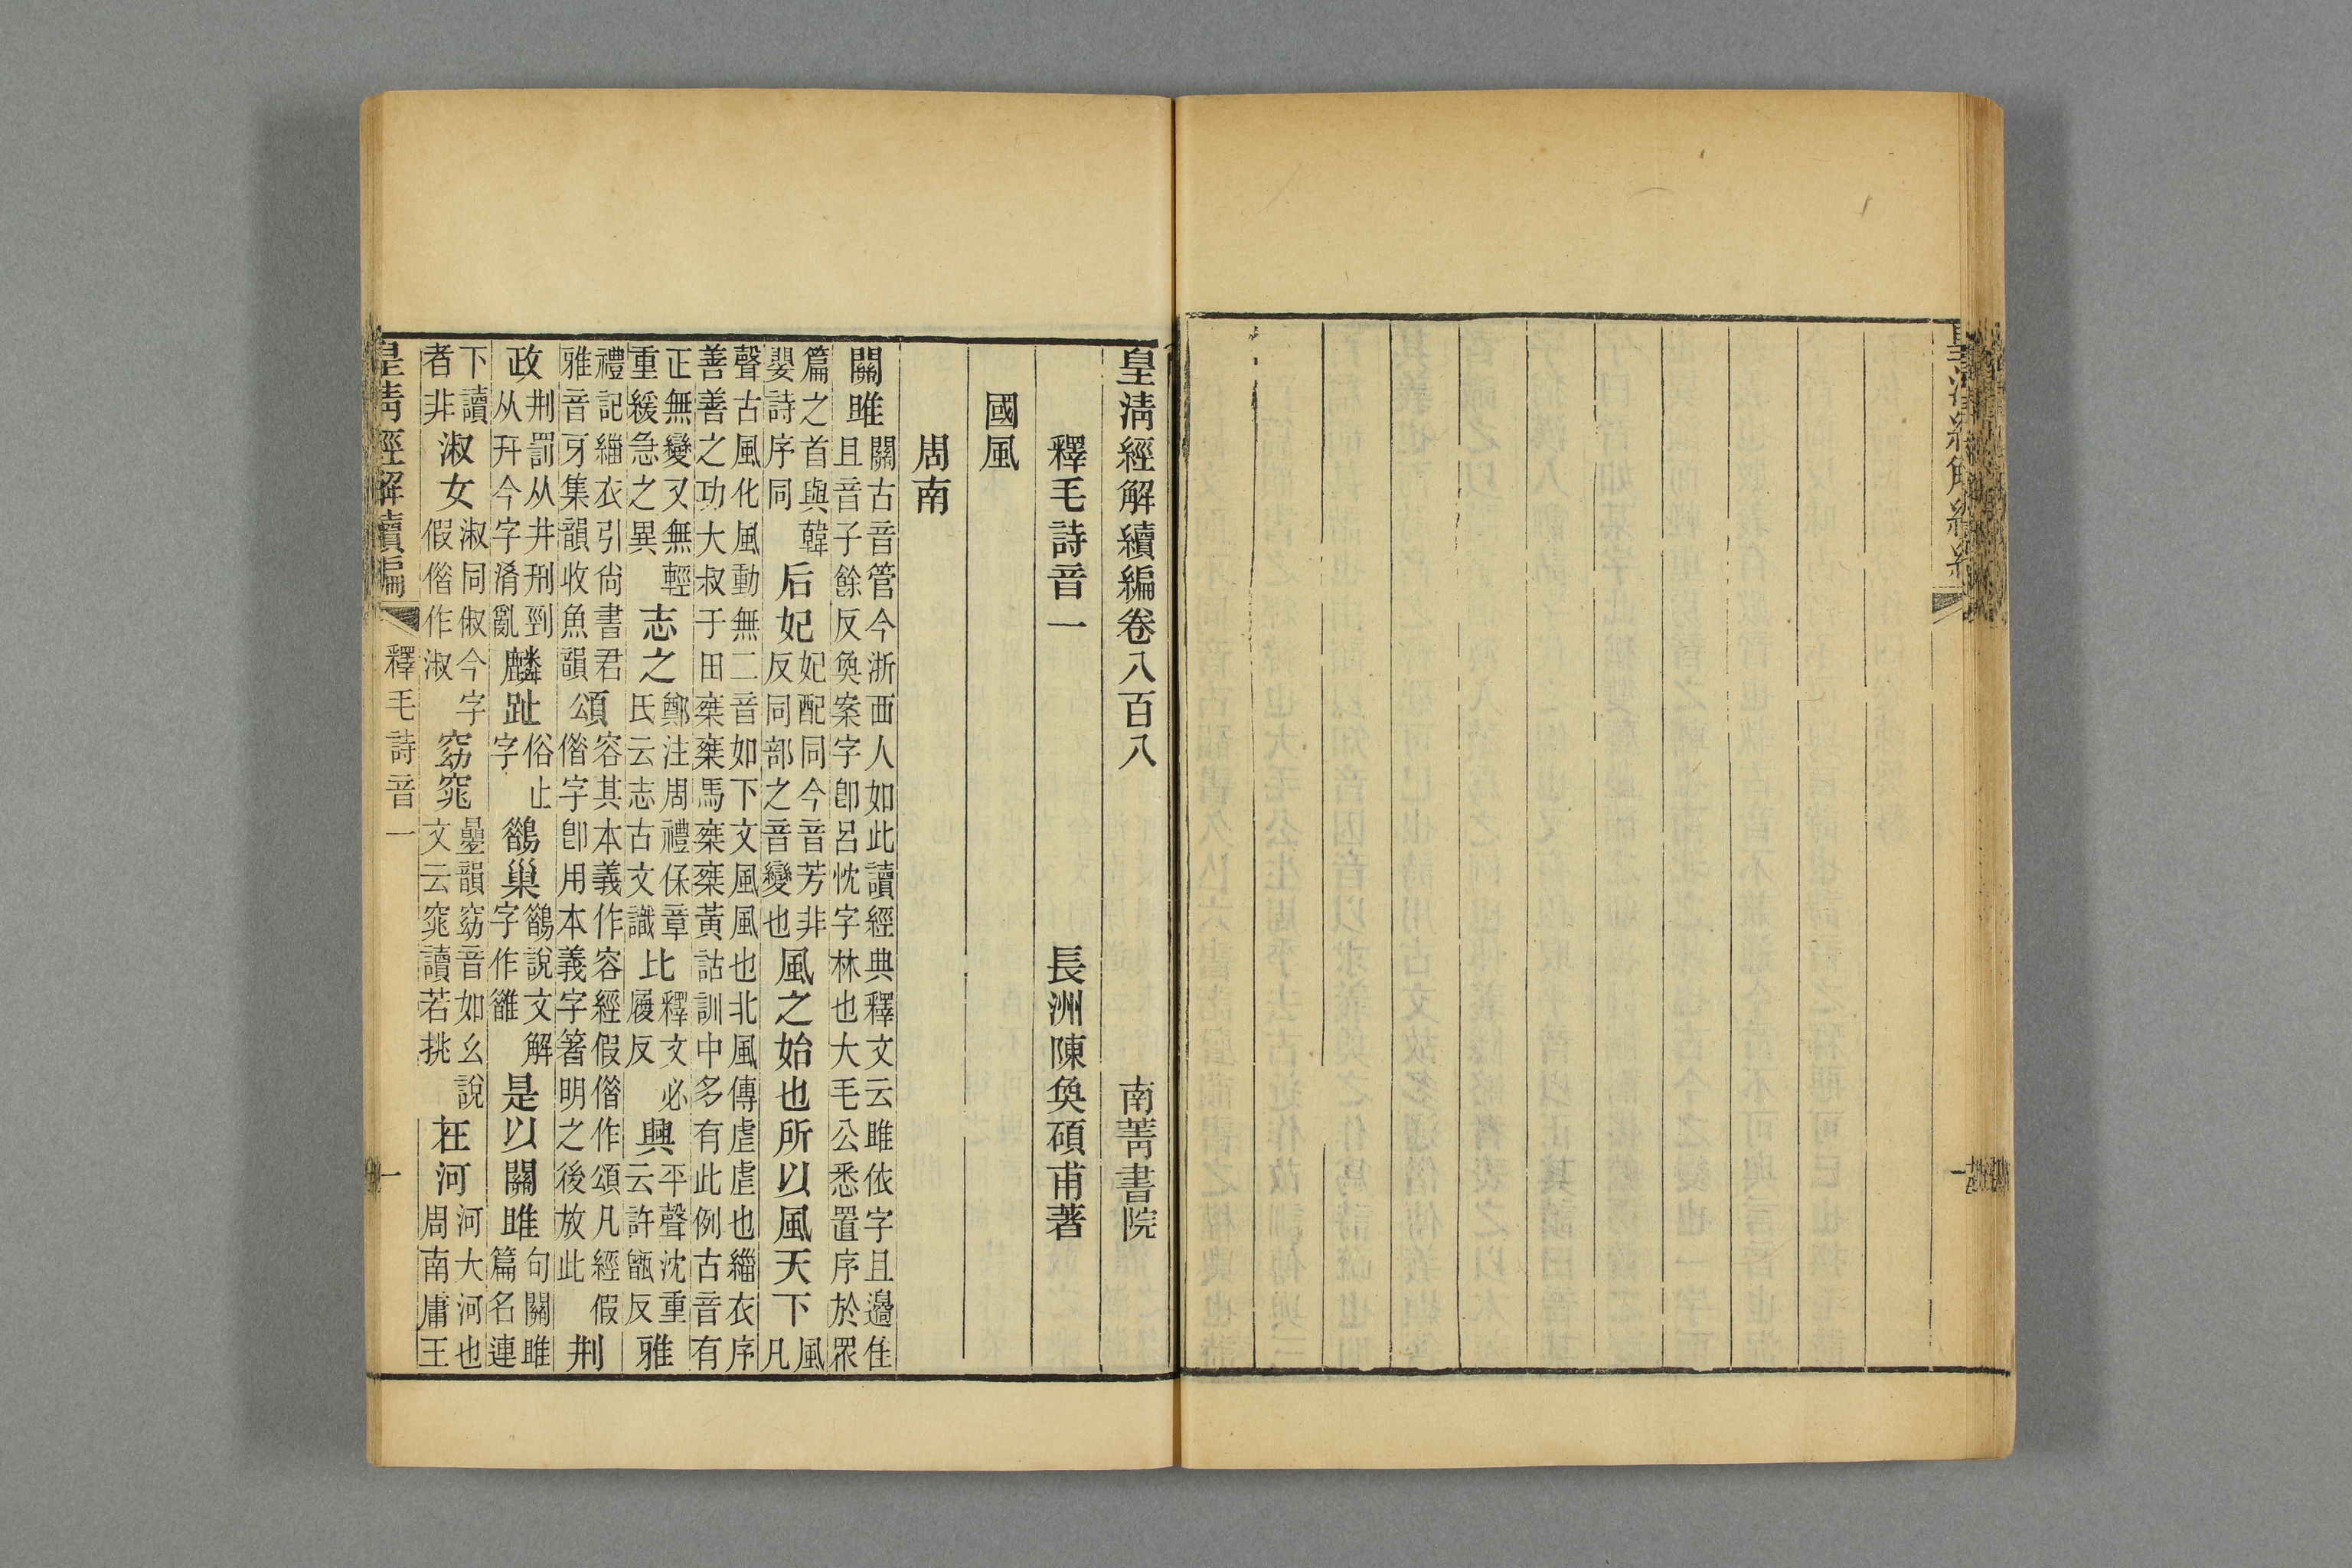 皇清經解續編卷八百八 南菁書院
釋毛詩音一 長洲陳奐碩甫著
國風
周南
關雎 關古音管今浙西人如此讀經典釋文云雎依字且邉隹
且音子餘反奐案字卽呂忱字林也大毛公悉置序於眾
篇之首與韓
嬰詩序同 后妃 妃配同今音芳非
反同部之音變也 風之始也所以風天下 風
凡
聲古風化風動無二音如下文風風也北風傳虐虐也緇衣序
善善之功大叔于田桀桀馬桀桀黃詁訓中多有此例古音有
正無變又無輕
重緩急之異 志之 鄭注周禮保章
氏云志古文識 比 釋文必
履反 興 平聲沈重
云許甑反 雅
禮記緇衣引尙書君
雅音牙集韻收魚韻 頌 容其本義作容經假僭作頌凡經假
僭字卽用本義字箸明之後放此 荆
政 荆罰从井刑剄
从幵今字淆亂 麟趾 俗止
字 鵒巢 鵒說文解
字作雒 是以關雎 句關雎
篇名連
下讀
者非 淑女 淑同俶今字
假僭作淑 窈窕 曡韻窈音如幺說
文云窕讀若挑 在河 河大河也
周南庸王
皇清經解續編 釋毛詩音一 一